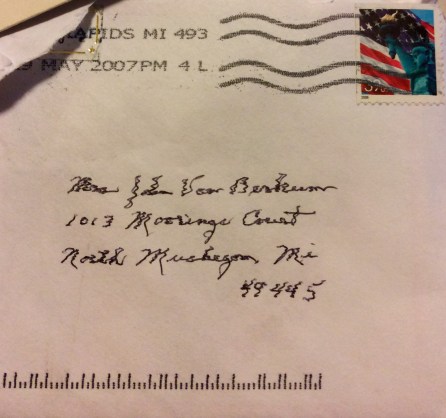 RAPIDS MI 493
MAY 2007 PM 4 L
Van Berkum
1013 Moorings Court
North Muskegon Mi
49445